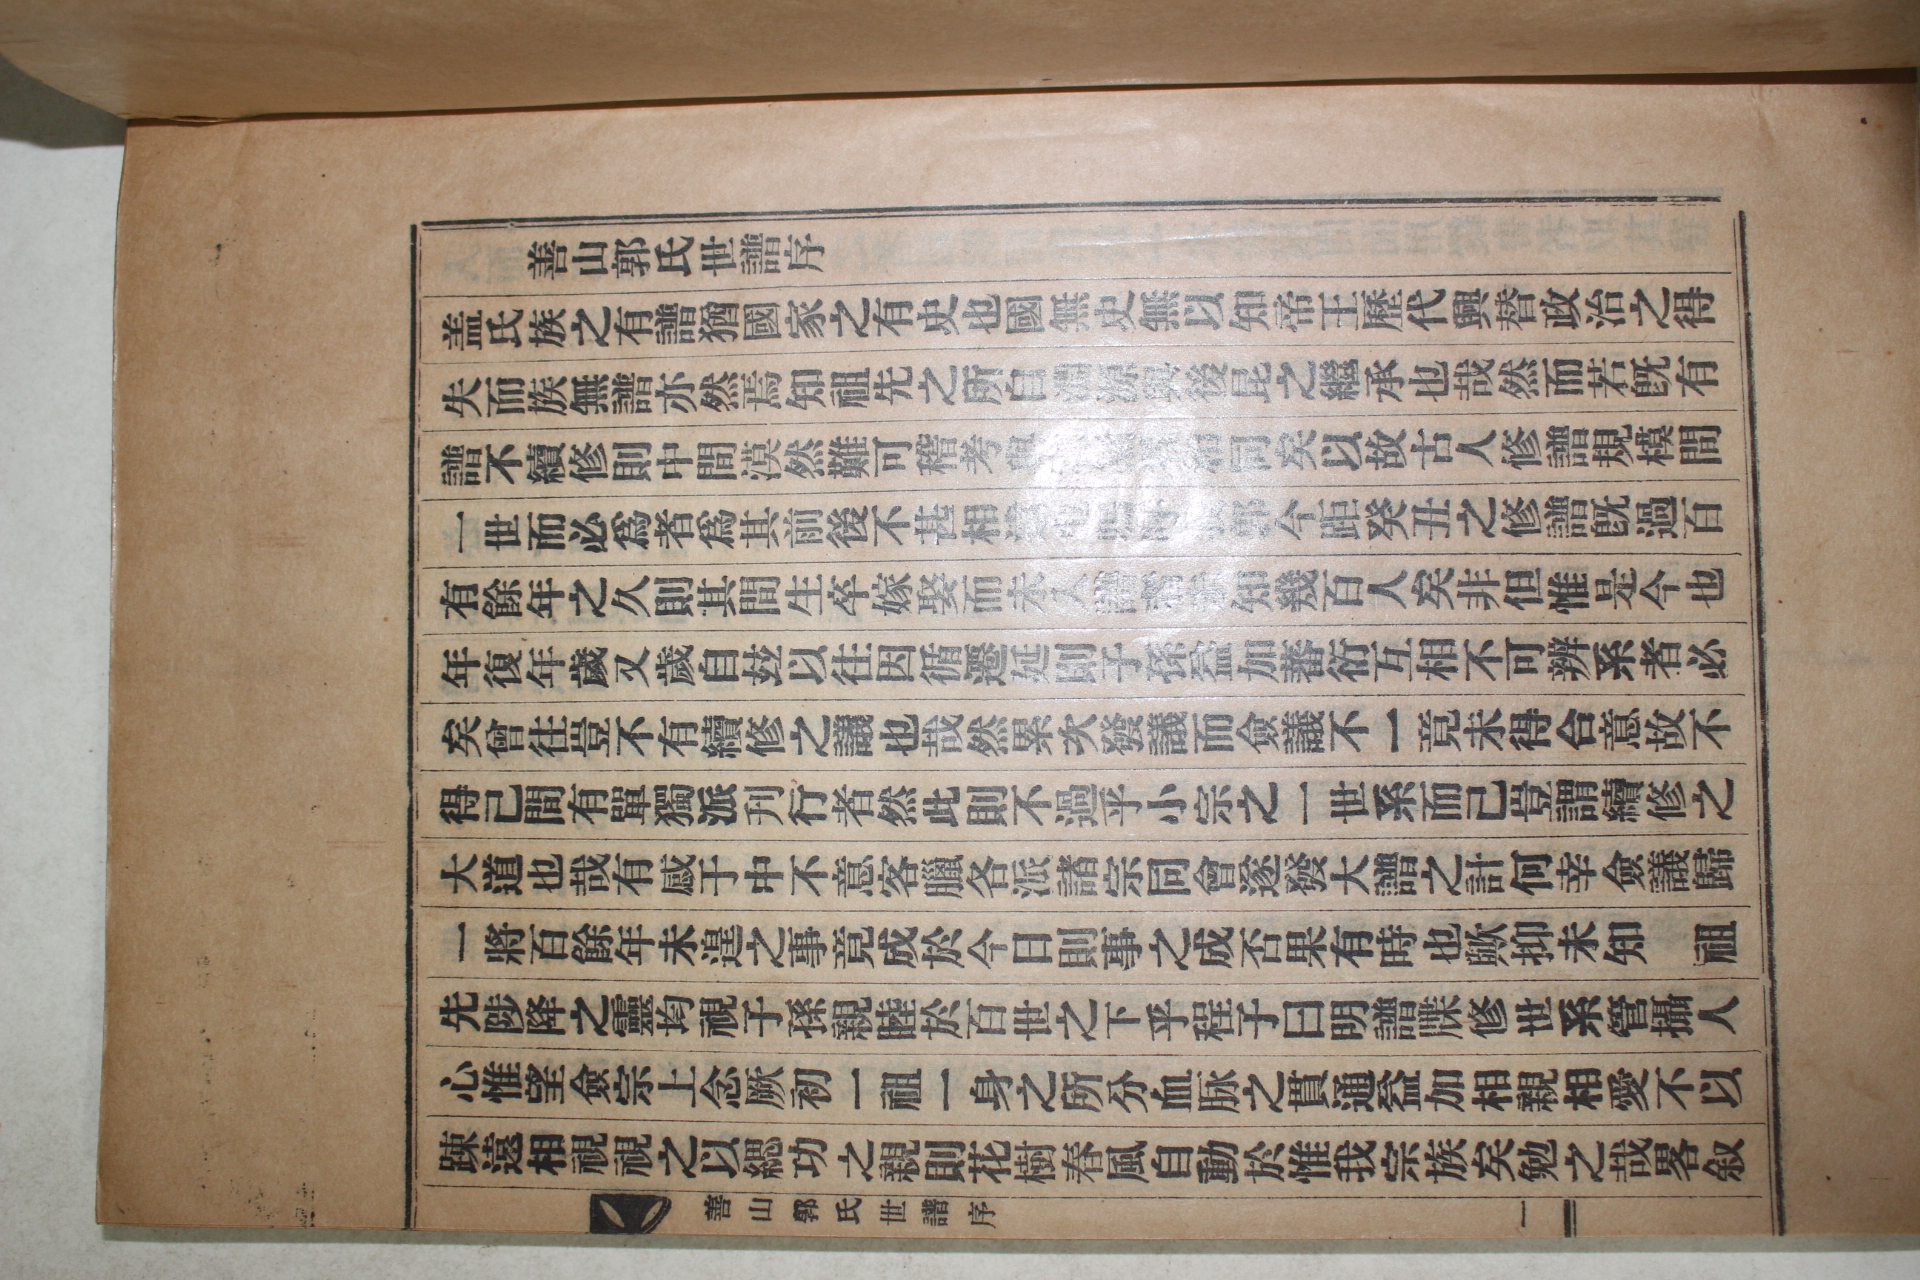 善山郭氏世譜序
盖氏族之有譜猶國家之有史也國無史無以知帝王歷代興替政治之得
失而族無譜亦然焉知祖先之所自後昆之繼承也哉然而若旣有
譜不續修則中間漠然難可稽考同矣以故古人修譜規模間
一世而必爲者爲其前後不甚相今距癸丑之修譜旣過百
有餘年之久則其間生卒嫁娶而未入譜知幾百人矣非但惟是今也
年復年歲又歲自玆以往因循遷延則子孫益加蕃衍互相不可辨系者必
矣曾往豈不有續修之議也哉然累次發議而僉議不一竟未得合意故不
得已間有單獨派刋行者然此則不過乎小宗之一世系而已豈謂續修之
大道也哉有感于中不意客臘各派諸宗同會遂發大譜之計何幸僉議歸
一將百餘年未遑之事竟成於今日則事之成否果有時也歟抑未知 祖
先陟降之靈均視子孫親睦於百世之下乎程子曰明譜牒修世系管攝人
心惟望僉宗上念厥初一祖一身之所分血脉之貫通益加相親相愛不以
踈遠相視視之以緦功之親則花樹春風自動於惟我宗族矣勉之哉畧叙
善山郭氏世譜序 一